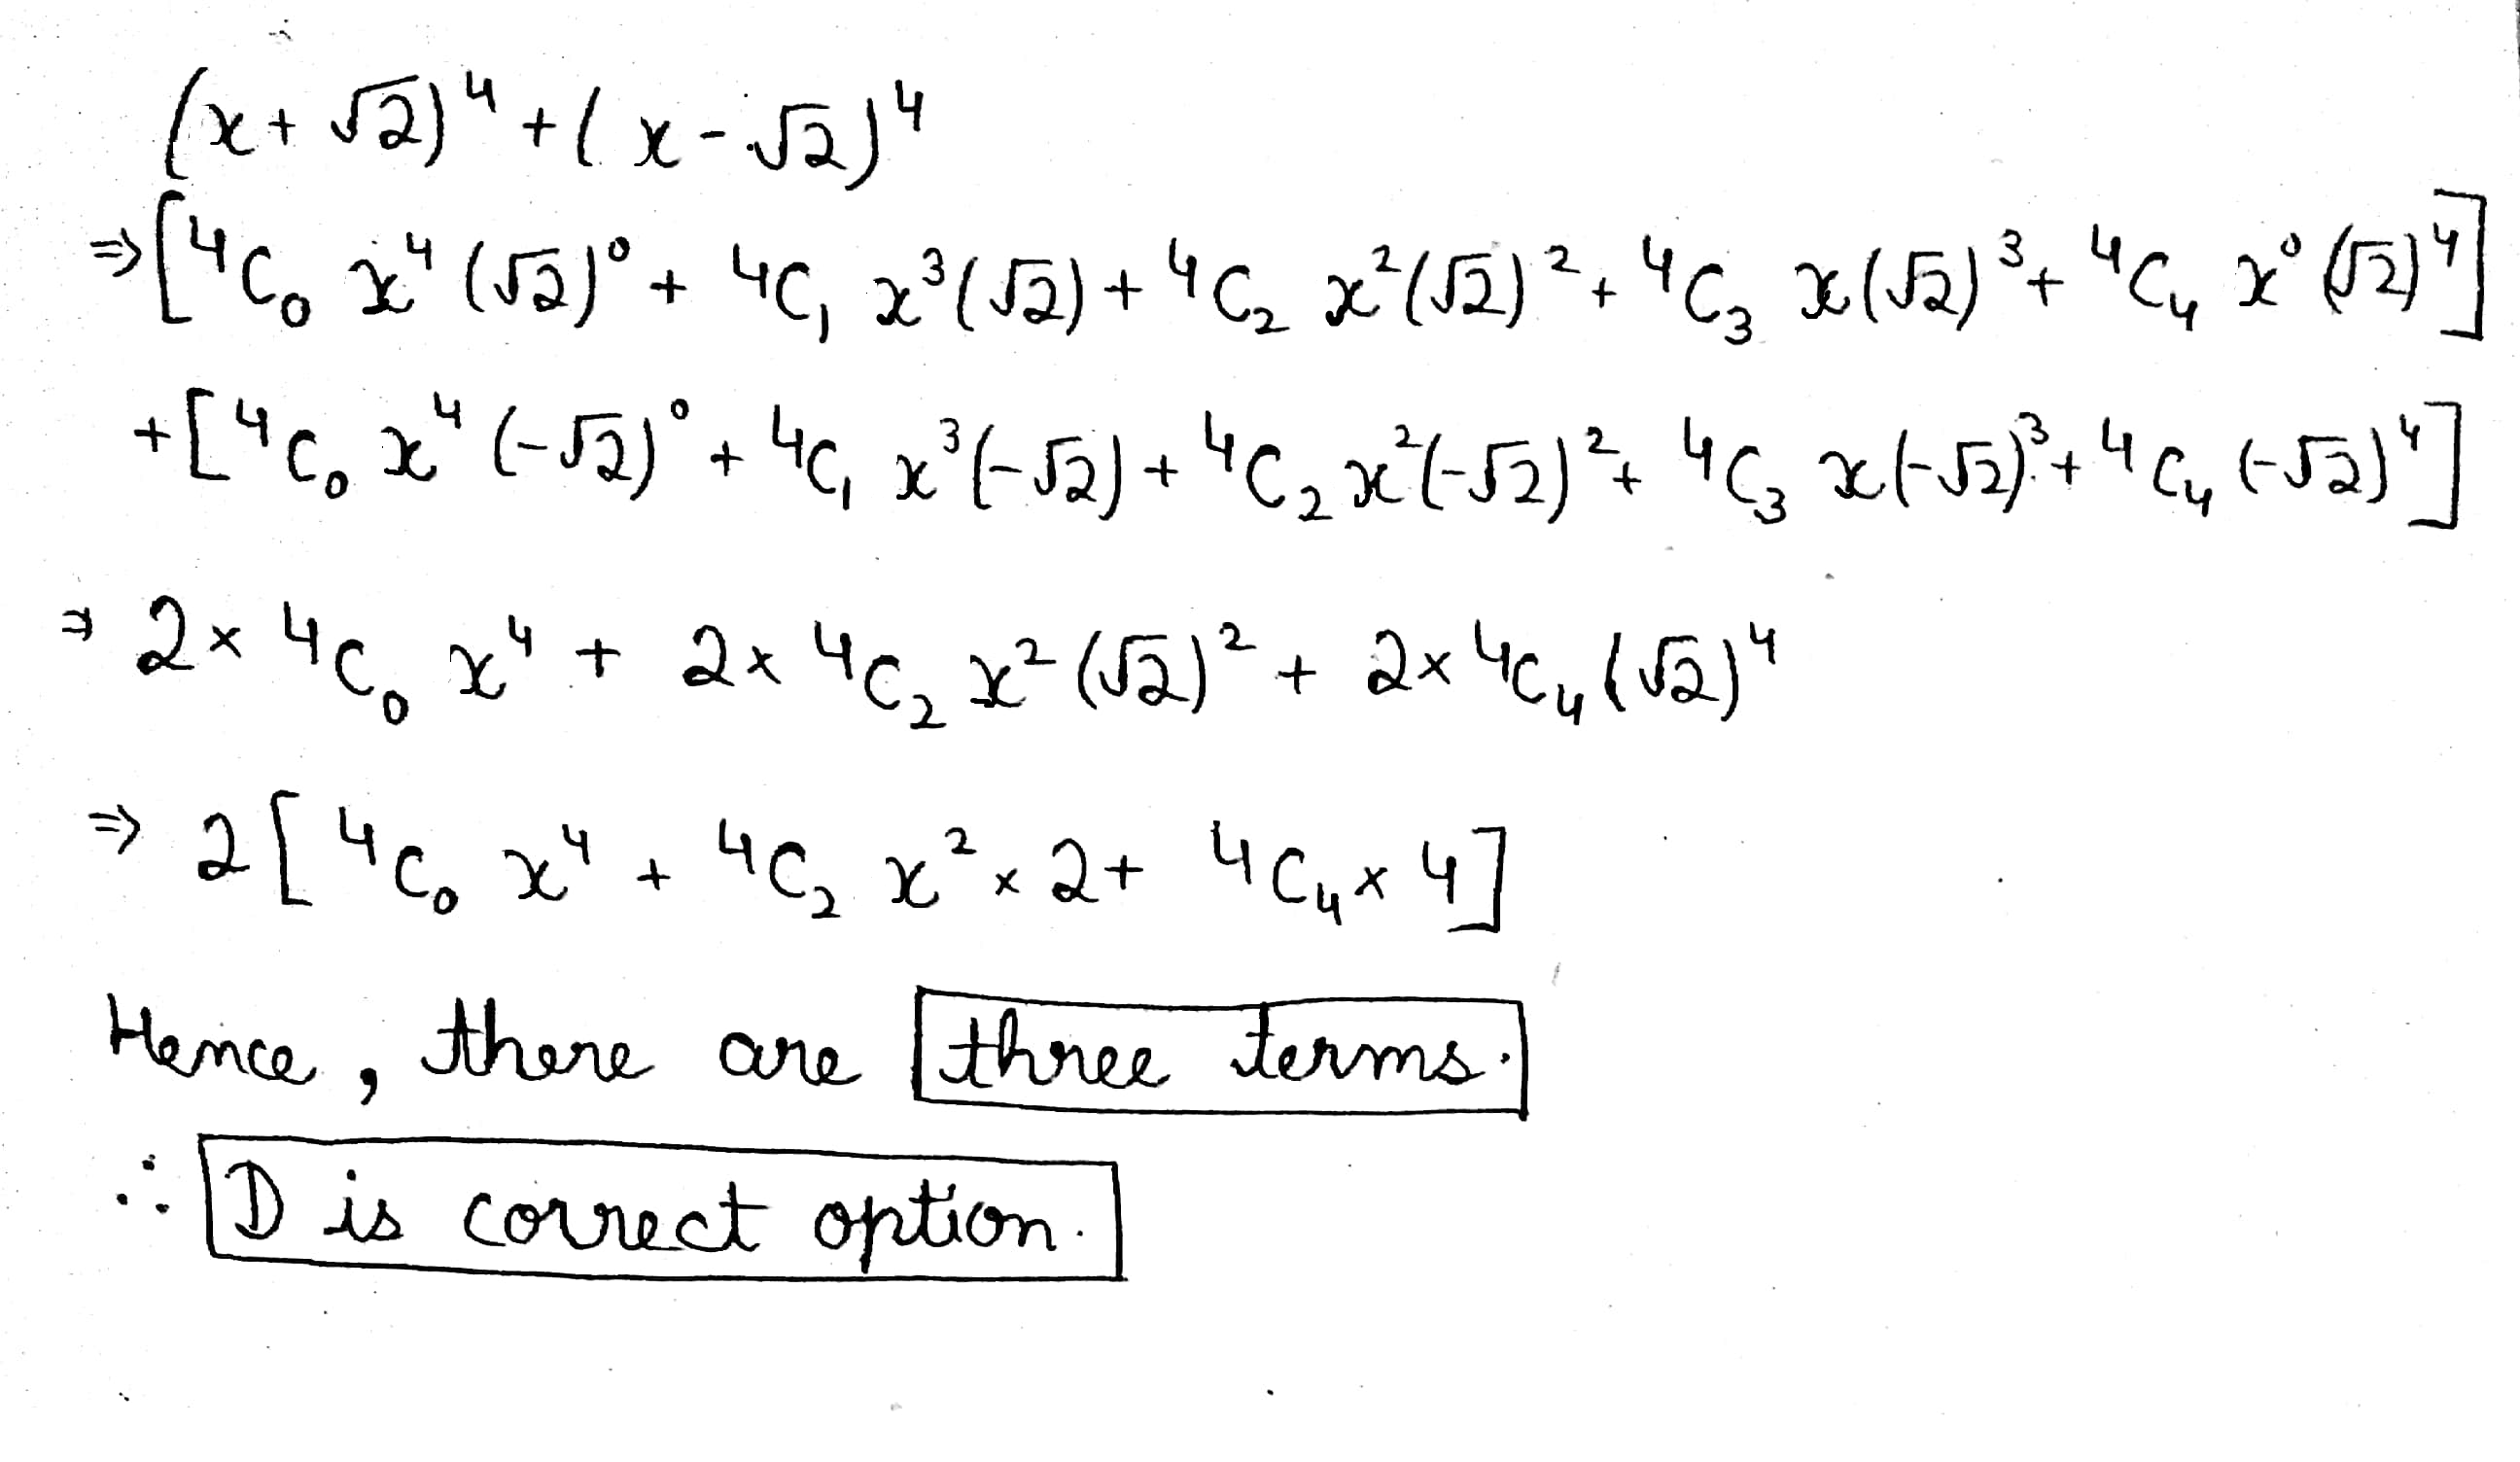 (x+√2)⁴+(x-√2)⁴
⇒[⁴C₀ x⁴(√2)⁰ + ⁴C₁ x³(√2) + ⁴C₂ x²(√2)² + ⁴C₃ x(√2)³ + ⁴C₄ x⁰(√2)⁴]
+[⁴C₀ x⁴(-√2)⁰ + ⁴C₁ x³(-√2) + ⁴C₂ x²(-√2)² + ⁴C₃ x(-√2)³ + ⁴C₄ (-√2)⁴]
⇒ 2× ⁴C₀ x⁴ + 2× ⁴C₂ x²(√2)² + 2× ⁴C₄(√2)⁴
⇒ 2[⁴C₀ x⁴ + ⁴C₂ x² × 2 + ⁴C₄ × 4]
Hence, there are three terms.
∴ D is correct option.